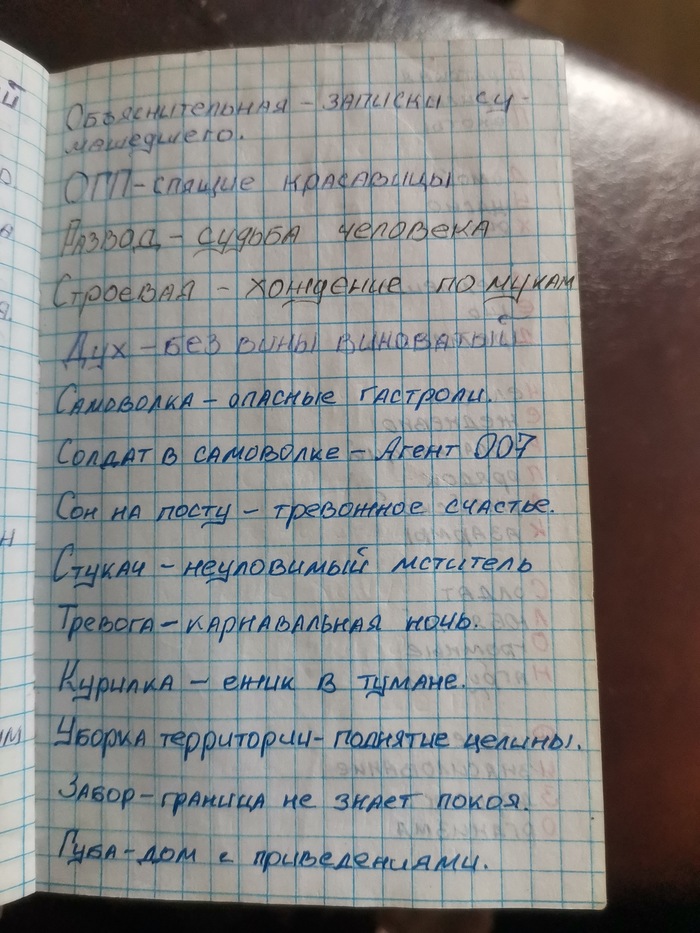 Объяснительная – записки су-
машедшего.
ОГП – спящие красавицы
Развод – судьба человека
Строевая – хождение по мукам
Дух – без вины виноватый
Самоволка – опасные гастроли.
Солдат в самоволке – Агент 007
Сон на посту – тревожное счастье.
Стукач – неуловимый мститель
Тревога – карнавальная ночь.
Курилка – ежик в тумане.
Уборка территории – поднятие целины.
Забор – граница не знает покоя.
Губа – дом с приведениями.